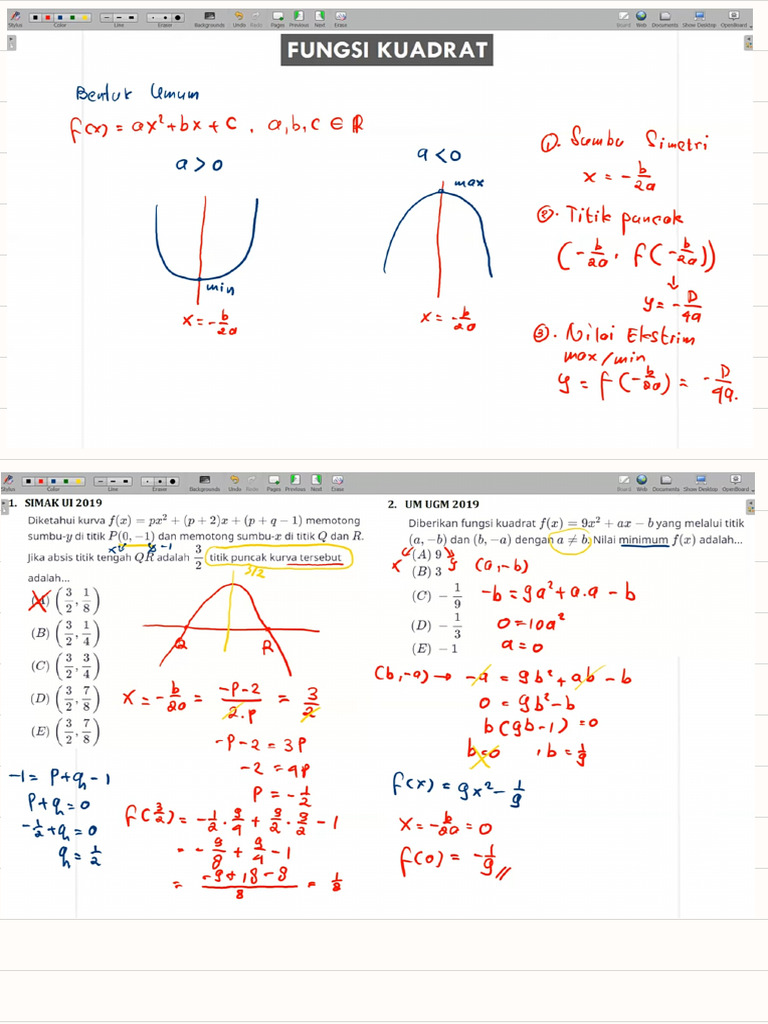 Stylus Color Line Eraser Backgrounds Undo Redo Pages Previous Next Erase Board Web Documents Show Desktop OpenBoard
FUNGSI KUADRAT
Bentuk Umum
f(x) = ax² + bx + c , a, b, c ∈ ℝ
a > 0
min
x = -b/2a
a < 0
max
x = -b/2a
①. Sumbu Simetri
x = -b/2a
②. Titik puncak
(-b/2a, f(-b/2a))
↓
y = -D/4a
③. Nilai Ekstrim
max/min
y = f(-b/2a) = -D/4a.
Stylus Color Line Eraser Backgrounds Undo Redo Pages Previous Next Erase Board Web Documents Show Desktop OpenBoard
1. SIMAK UI 2019
Diketahui kurva f(x) = px² + (p + 2)x + (p + q − 1) memotong
sumbu-y di titik P(0, −1) dan memotong sumbu-x di titik Q dan R.
x y -1
Jika absis titik tengah QR adalah 3/2 titik puncak kurva tersebut
adalah...
3/2
(A) (3/2, 1/8)
(B) (3/2, 1/4)
(C) (3/2, 3/4)
(D) (3/2, 7/8)
(E) (3/2, 7/8)
Q R
x = -b/2a = -p-2/2.p = 3/2
-p-2 = 3p
-2 = 4p
p = -1/2
f(3/2) = -1/2 . 9/4 + 3/2 . 3/2 - 1
= -9/8 + 9/4 - 1
= -9+18-8/8 = 1/8
-1 = p+q-1
p+q = 0
-1/2+q = 0
q = 1/2
2. UM UGM 2019
Diberikan fungsi kuadrat f(x) = 9x² + ax − b yang melalui titik
(a, −b) dan (b, −a) dengan a ≠ b. Nilai minimum f(x) adalah...
x y
(A) 9
(B) 3
(C) −1/9
(D) −1/3
(E) −1
(a,-b)
-b = 9a² + a.a - b
0 = 10a²
a = 0
(b,-a) → -a = 9b² + ab - b
0 = 9b² - b
b(9b-1) = 0
b=0 , b = 1/9
f(x) = 9x² - 1/9
x = -b/2a = 0
f(0) = -1/9 //